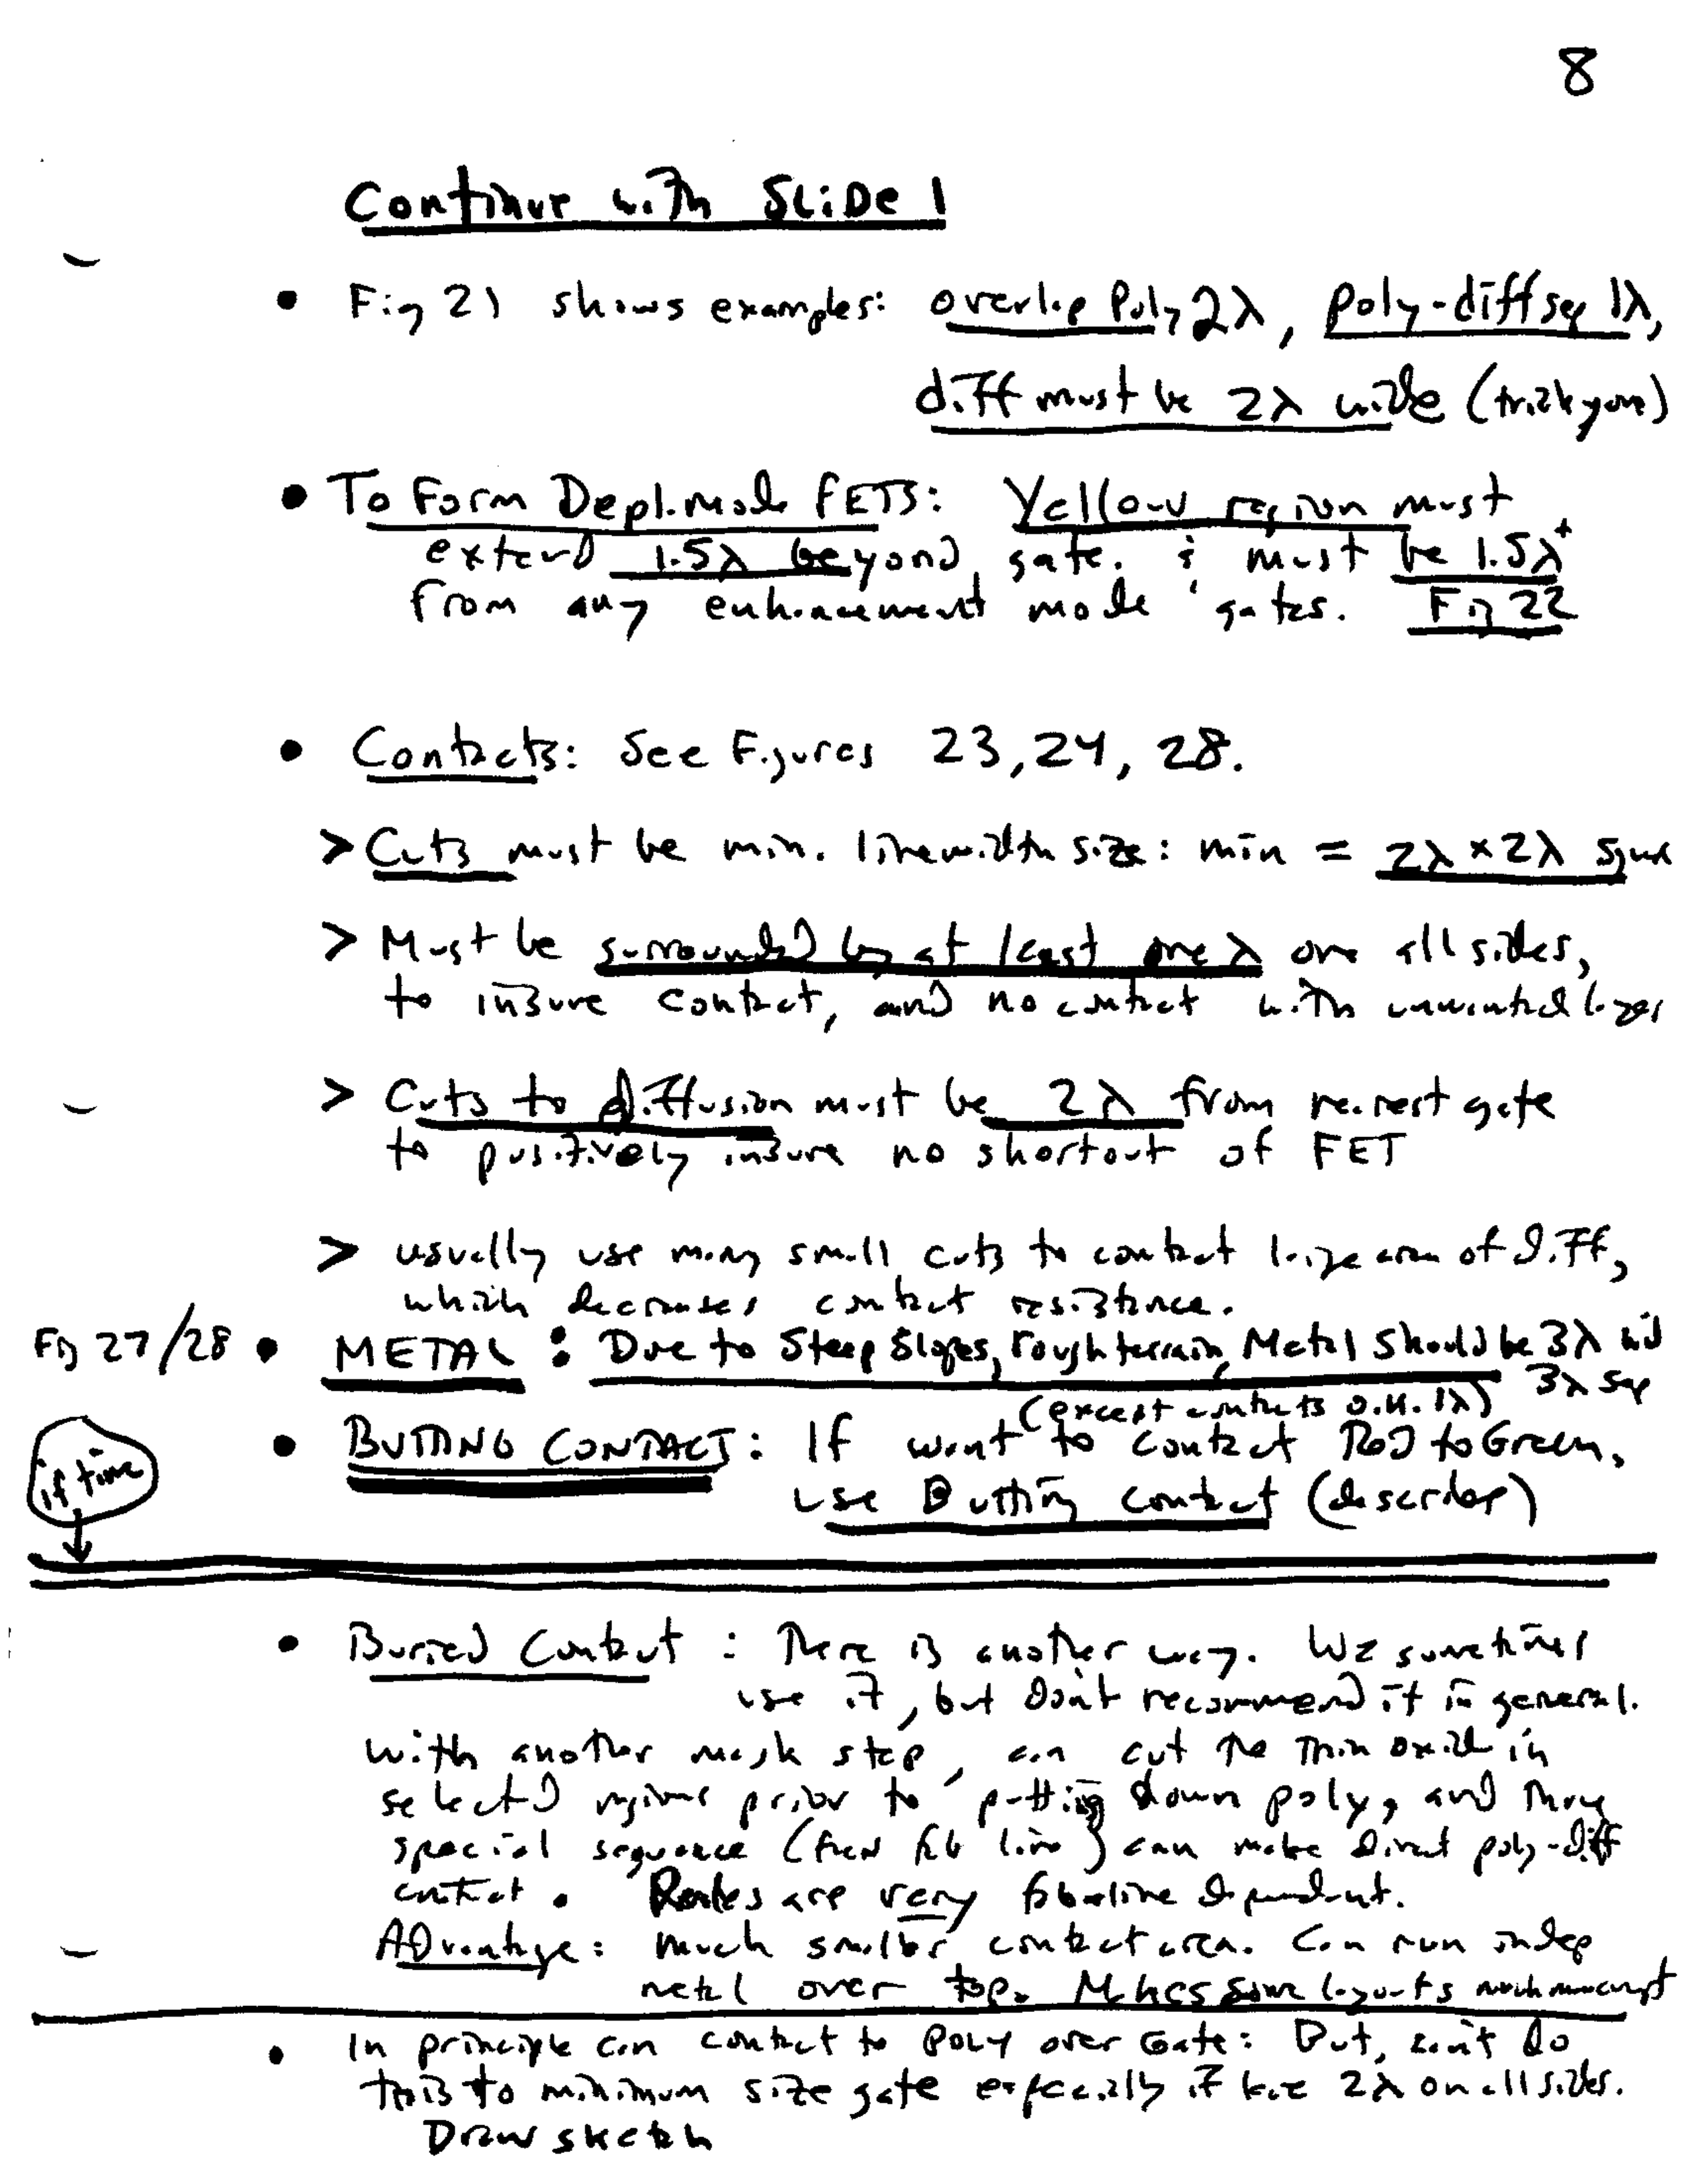 8
Continue with SLiDe 1
• Fig 21 shows examples: overlap Poly 2λ, poly-diff sep 1λ,
diff must be 2λ wide
• To Form Depl. mode FETS: Yellow region must
extend 1.5λ beyond gate. & must be 1.5λ+
from any enhancement mode gates. Fig 22
• Contacts: See Figures 23, 24, 28.
> Cuts must be min. linewidth size: min = 2λ × 2λ square
> Must be surrounded by at least one λ on all sides,
to insure contact, and no contact with unwanted layer
> Cuts to diffusion must be 2λ from nearest gate
to positively insure no shortout of FET
> usually use many small cuts to contact large area of diff,
which decreases contact resistance.
Fig 27/28 • METAL: Due to Steep Slopes, rough terrain, Metal Should be 3λ wid
3λ sep
(except contacts O.K. 1λ)
if time
• BUTTING CONTACT: If want to contact Red to Green,
use Butting contact (describe)
• Buried Contact: There is another way. We sometimes
use it, but don't recommend it in general.
With another mask step, can cut the thin oxide in
selected regions prior to putting down poly, and thru
special sequence ( fab line) can make direct poly-diff
contact. Rules are very fabline dependent.
ADvantage: much smaller contact area. Can run indep
metal over top. Makes some layouts much more compt
• In principle can contact to POLY over Gate: But, don't do
this to minimum size gate especially if have 2λ on all sides.
Draw sketch